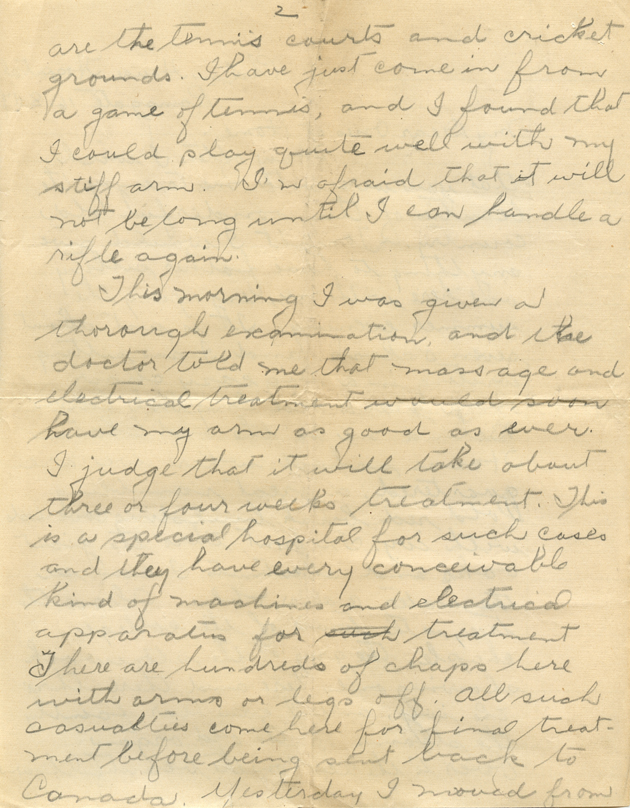 2
are the tennis courts and cricket
grounds. I have just come in from
a game of tennis, and I found that
I could play quite well with my
stiff arm. I'm afraid that it will
not be long until I can handle a
rifle again.
This morning I was given a
thorough examination, and the
doctor told me that massage and
electrical treatment would soon
have my arm as good as ever.
I judge that it will take about
three or four weeks treatment. This
is a special hospital for such cases
and they have every conceivable
kind of machines and electrical
apparatus for such treatment
There are hundreds of chaps here
with arms or legs off. All such
casualties come here for final treat-
ment before being sent back to
Canada. Yesterday I moved from